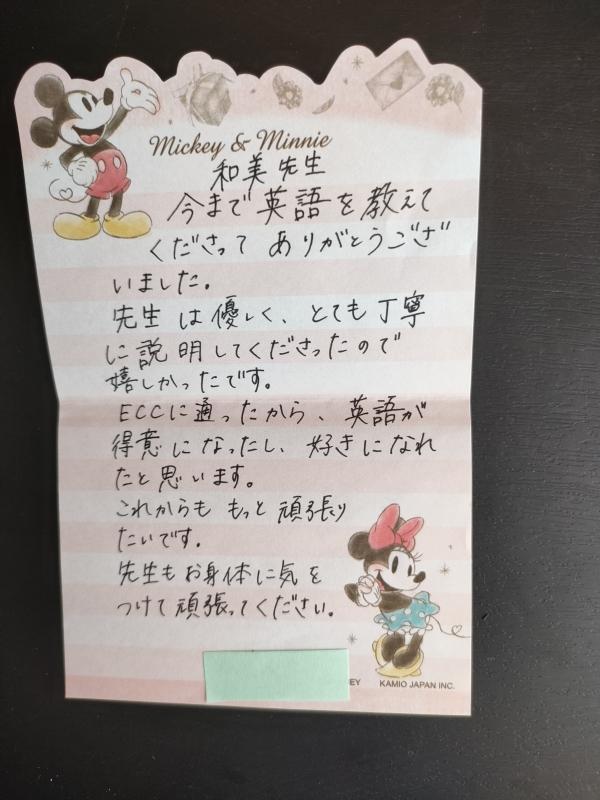 Mickey & Minnie
和美先生
今まで英語を教えて
くださって ありがとうござ
いました。
先生は優しく、とても丁寧
に説明してくださったので
嬉しかったです。
ECCに通ったから、英語が
得意になったし、好きになれ
たと思います。
これからも もっと頑張り
たいです。
先生もお身体に気を
つけて頑張ってください。
EY KAMIO JAPAN INC.